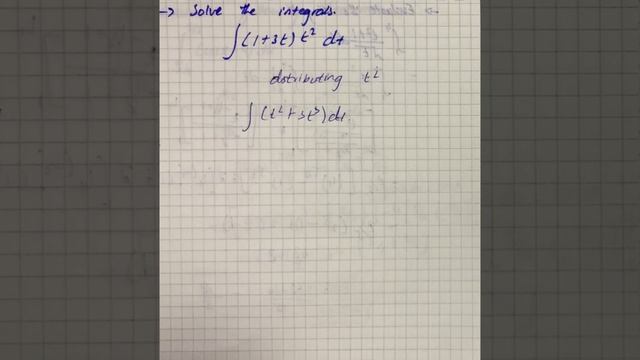 → Solve the integrals.
∫(1+3t) t² dt
distributing t²
∫(t²+3t³)dt.